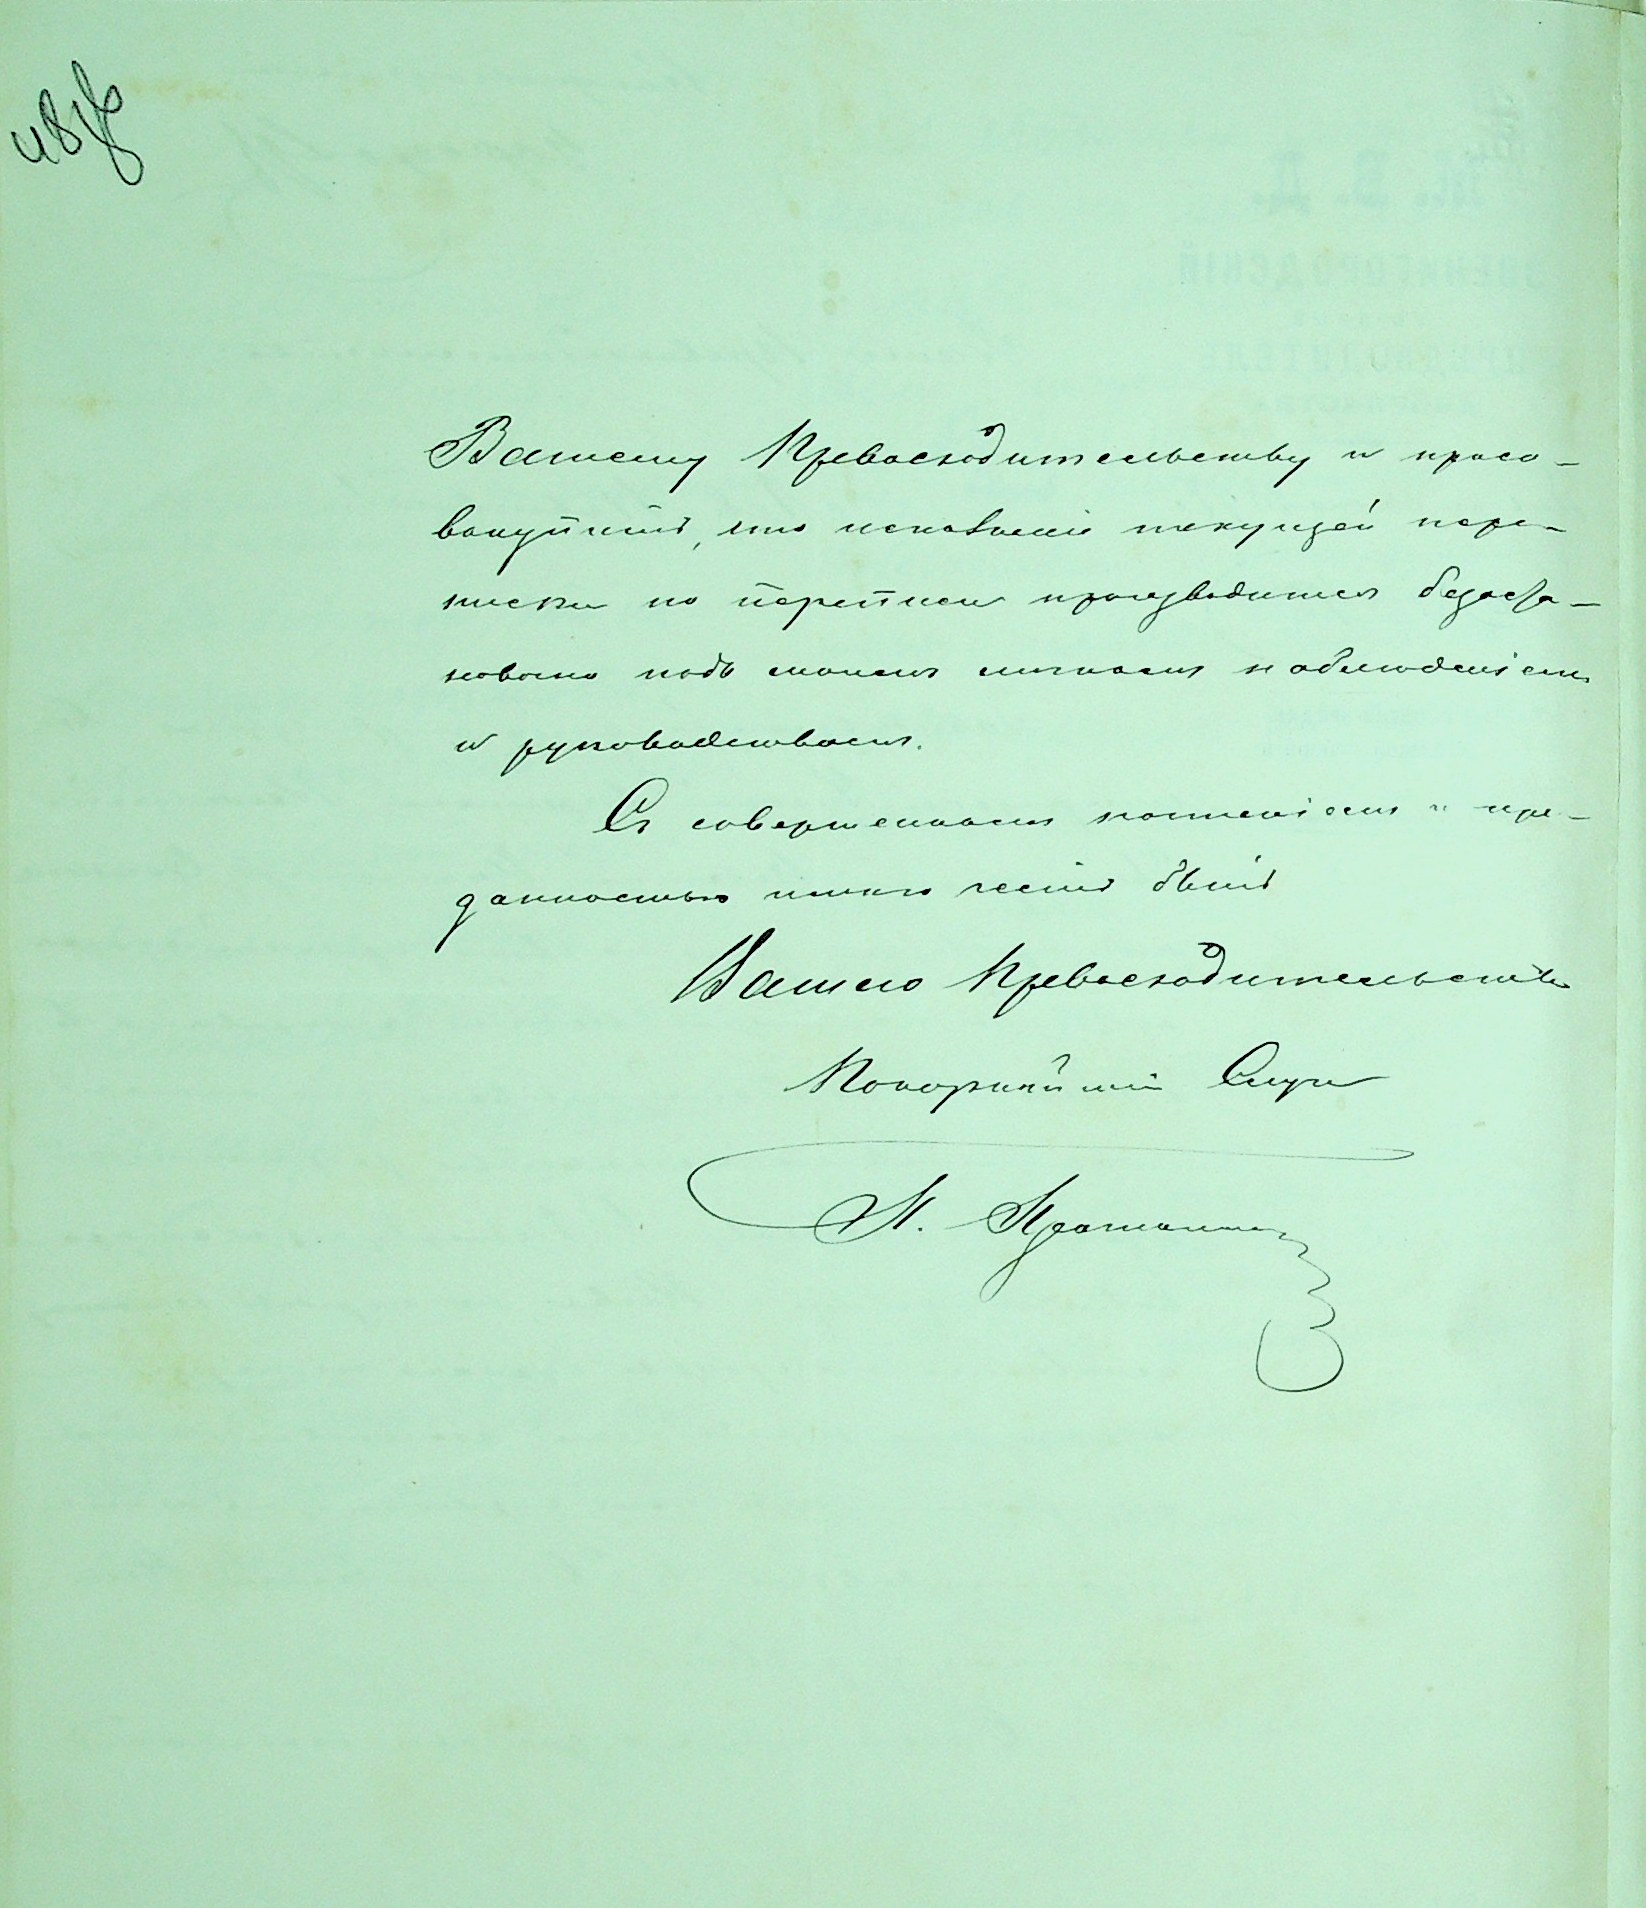 Вашему Превосходительству и присо-
вокупить, что исполненіе текущей пере-
писки по переписи производится безоста-
новочно подъ моимъ личнымъ наблюденіемъ
и руководствомъ.
Съ совершеннымъ почтеніемъ и пре-
данностью имѣю честь быть
Вашего Превосходительства
Покорнѣйшій Слуга